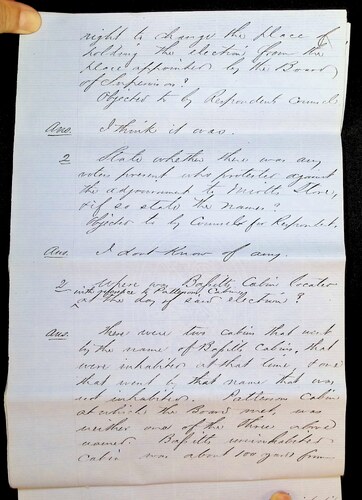 right to change the place of
holding the election from the
place appointed by the Board
of Supervisors?
Objected to by Respondents Counsels
Ans. I think it was.
2 State whether there was any
voters present who protested against
the adjournment to Store,
& if so state the names?
Objected to by Counsels for Respondent.
Ans. I dont know of any.
2 Where was Cabin location
with reference to Pattersons Cabin
at the day of said election?
Ans. There were two cabins that went
by the name of Cabins, that
were inhabited at that time & one
that went by that name that was
not inhabited. Patterson Cabin
at which the Board met, was
neither one of the three above
named. uninhabited
Cabin was about 100 yards from